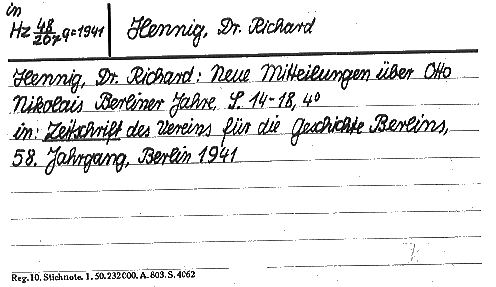 in
Hz 48/207 q=1941 Hennig, Dr. Richard
Hennig, Dr. Richard: Neue Mitteilungen über Otto
Nikolais Berliner Jahre, S. 14-18, 4°
in: Zeitschrift des Vereins für die Geschichte Berlins,
58. Jahrgang, Berlin 1941
Reg. 10. Stichnote. 1. 50. 232000. A. 803. S. 4062